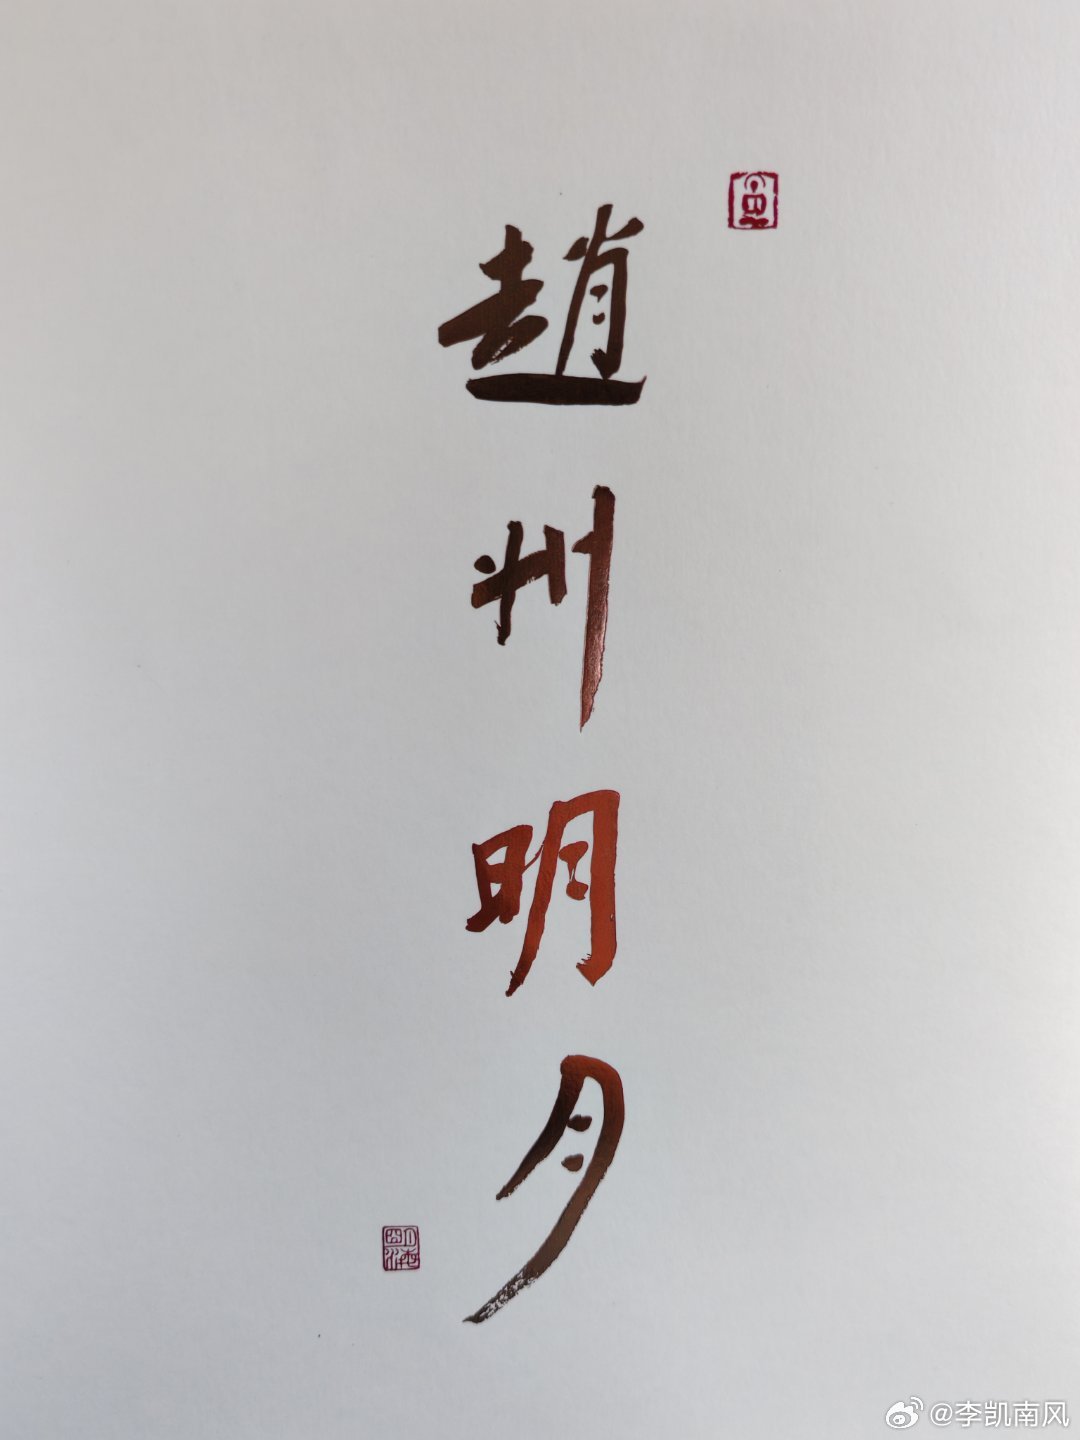 趙州明月
@李凯南风